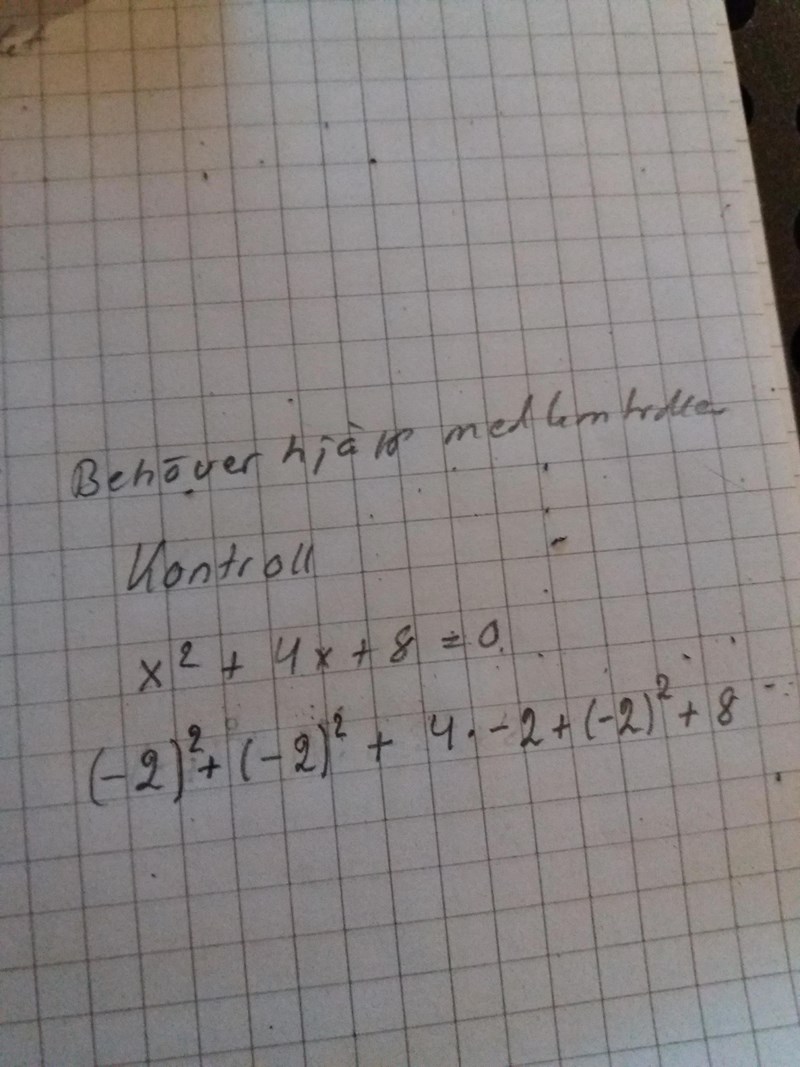 Behöver hjälp med kontrollen
Kontroll
x² + 4x + 8 = 0
(-2)² + (-2)² + 4 · -2 + (-2)² + 8